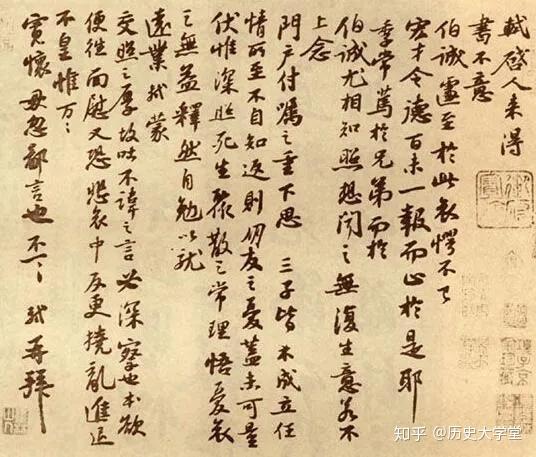 軾啓人來得
書不意
伯誠遽至於此哀愕不已
宏才令德百未一報而止於是耶
季常篤於兄弟而於
伯誠尤相知照想聞之無復生意若不
上念
門戶付囑之重下思 三子皆未成立任
情所至不自知返則朋友之憂蓋未可量
伏惟深照死生聚散之常理悟憂哀
之無益釋然自勉以就
遠業軾蒙
交照之厚故吐不諱之言必深察也本欲
便往面慰又恐悲哀中反更撓亂進退
不皇惟萬〻
寬懷毋忽鄙言也不一〻 軾再拜
知乎 @历史大学堂